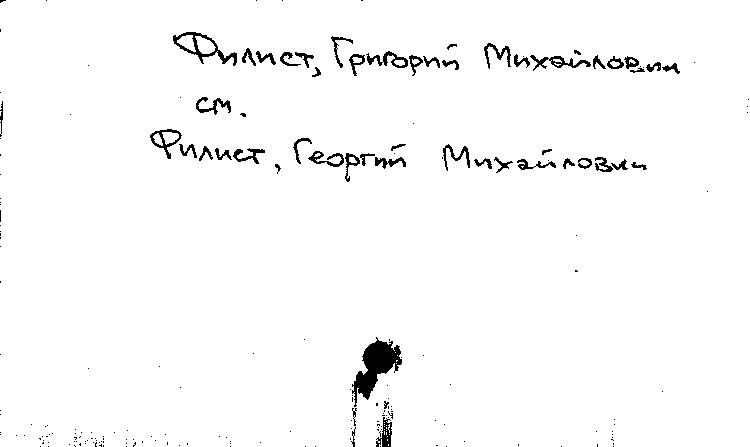 Филист, Григорий Михайлович
см.
Филист, Георгий Михайлович